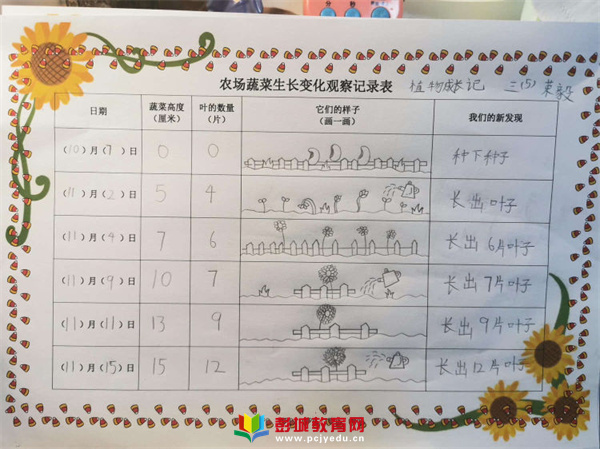 农场蔬菜生长变化观察记录表 植物成长记 三(5) 荣毅
日期 蔬菜高度（厘米） 叶的数量（片） 它们的样子（画一画） 我们的新发现
（10）月（7）日 0 0 种下种子
（11）月（2）日 5 4 长出叶子
（11）月（4）日 7 6 长出6片叶子
（11）月（9）日 10 7 长出7片叶子
（11）月（11）日 13 9 长出9片叶子
（11）月（15）日 15 12 长出12片叶子
彭城教育网
www.pcjyedu.cn